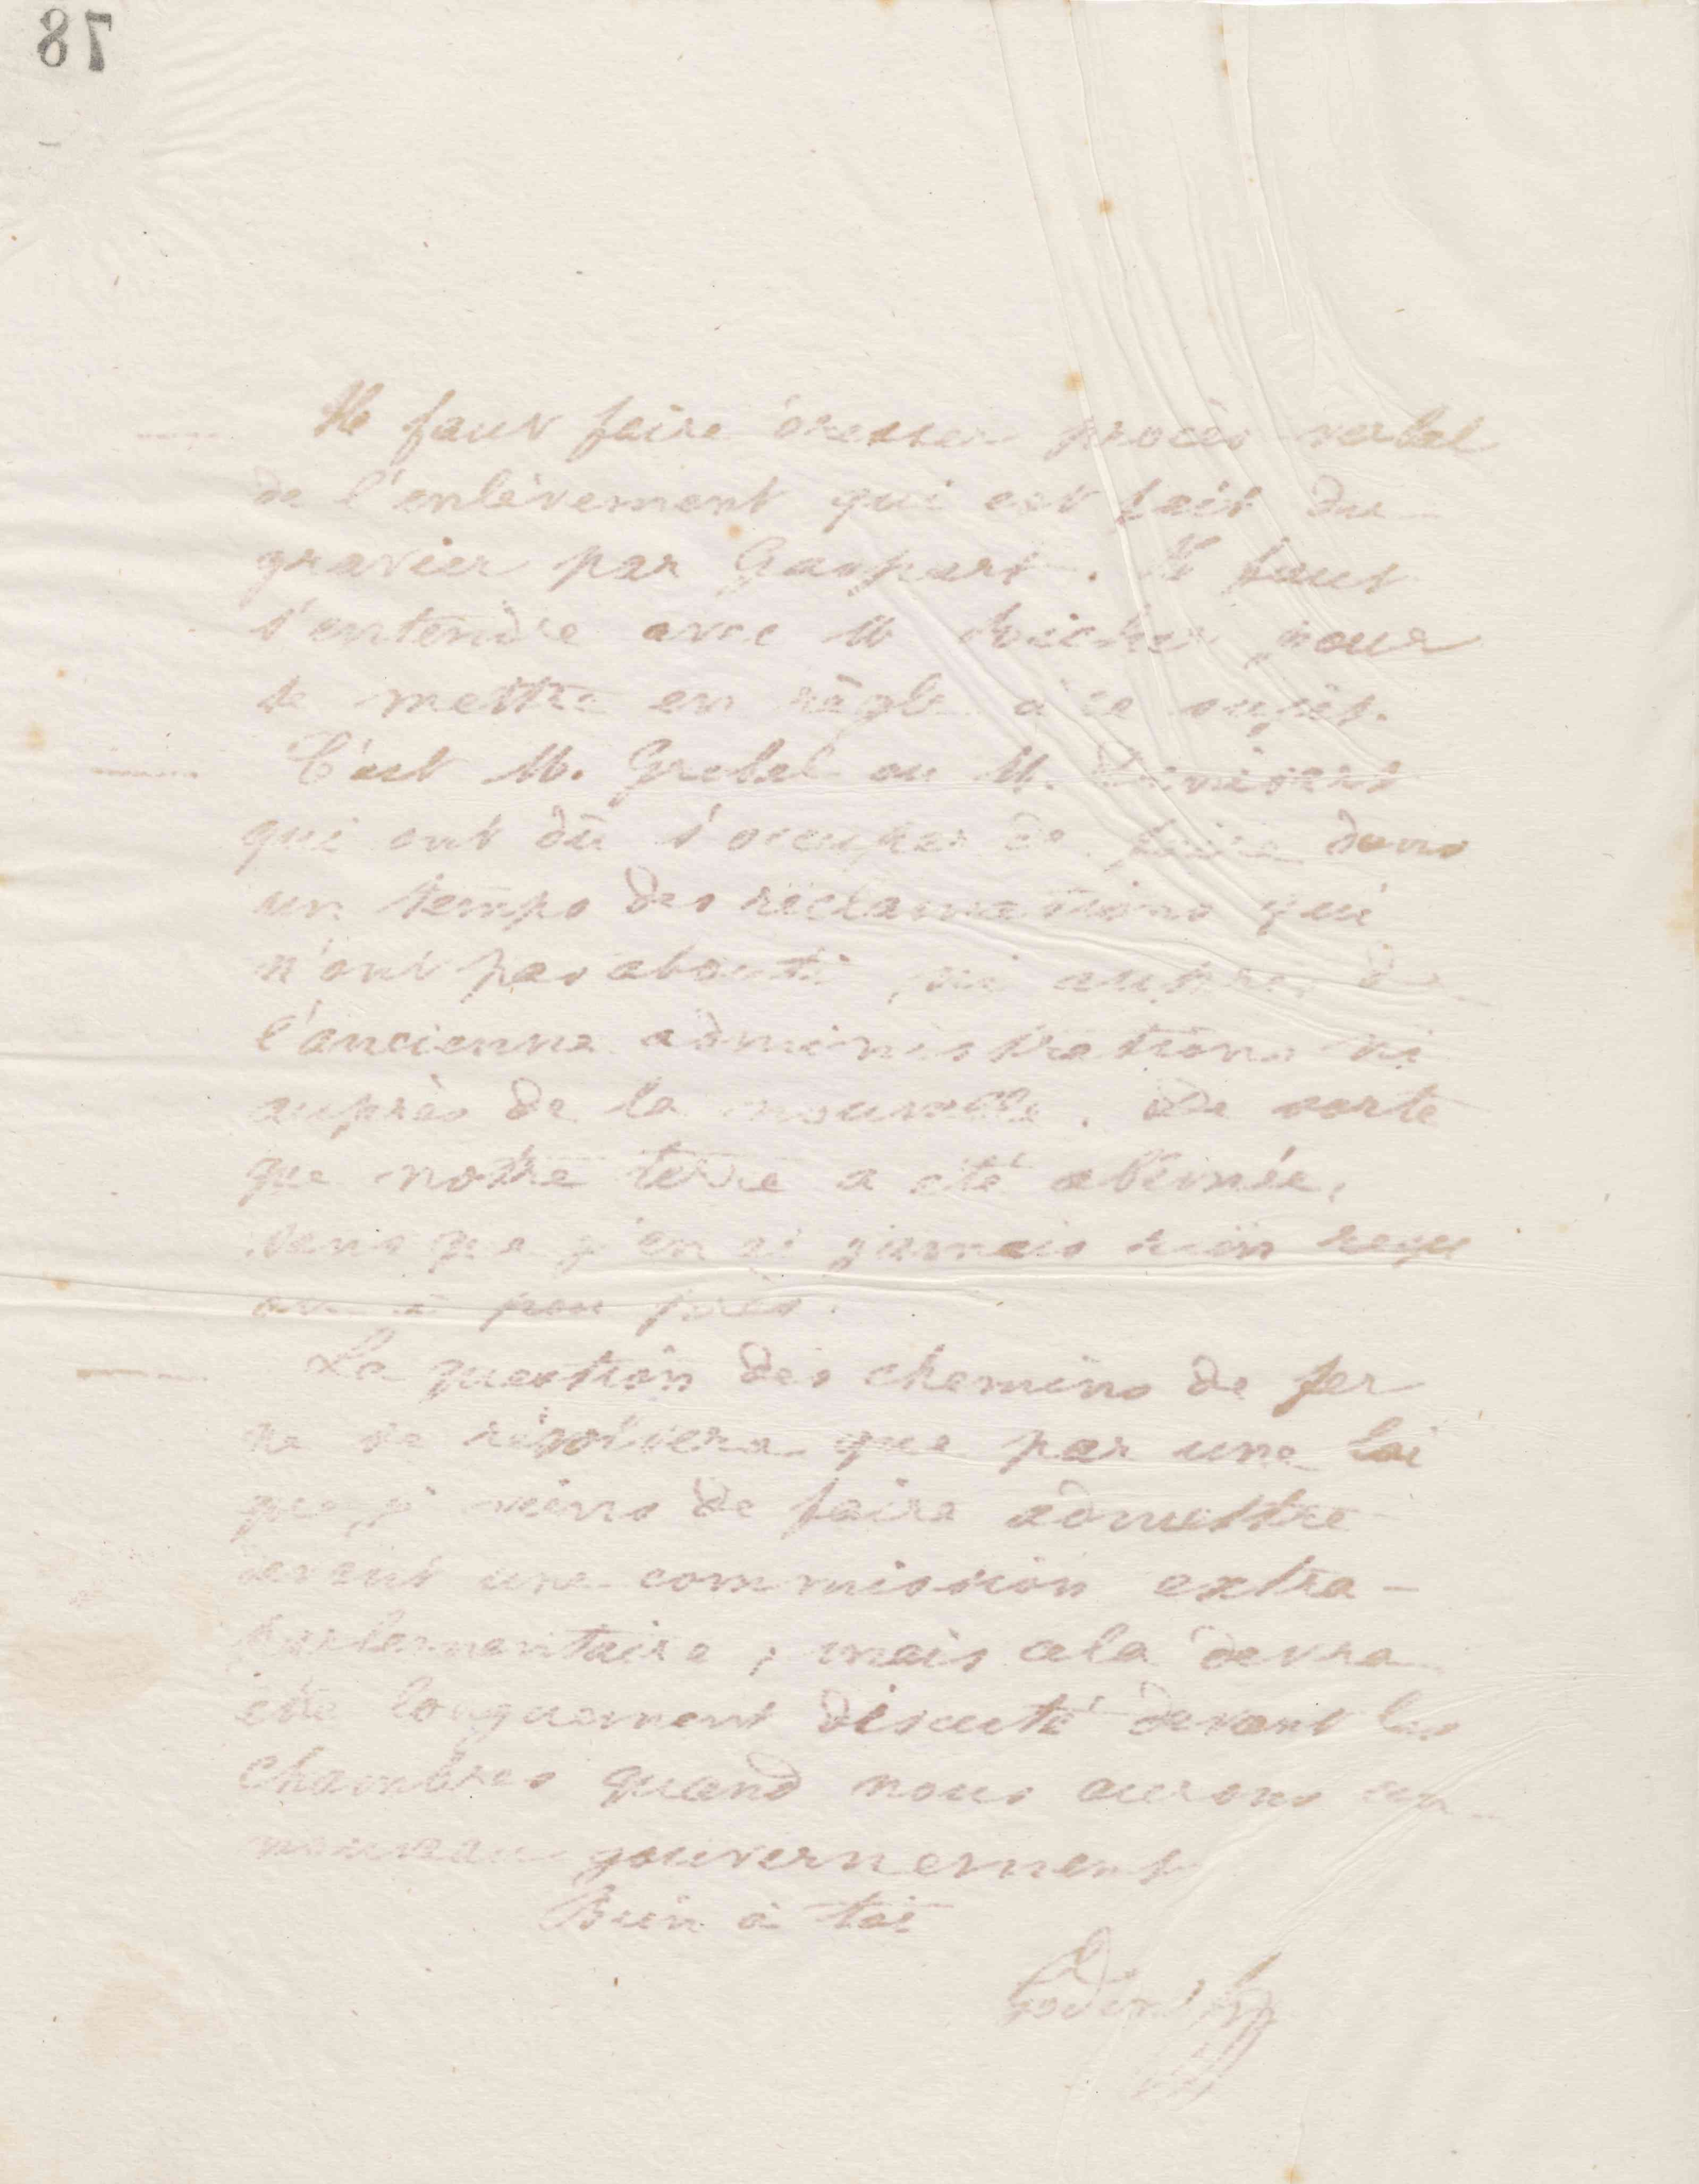 78
Il faut faire dresser procès verbal
de l'enlèvement qui est fait du
gravier par Gaspart. Il faut
s'entendre avec M pour
se mettre en règle à ce sujet.
C'est M. Grebel ou M.
qui ont dû s'occuper de faire dans
un temps des réclamations qui
n'ont pas abouti, ni auprès de
l'ancienne administration ni
auprès de la nouvelle. De sorte
que notre terre a été abîmée,
sans que j'en ai jamais rien reçu
ou à peu près.
La question des chemins de fer
ne se résolvera que par une loi
que je viens de faire admettre
devant une commission extra-
parlementaire ; mais cela devra
être longuement discuté devant les
Chambres quand nous aurons un
nouveau gouvernement
Bien à toi
Godin